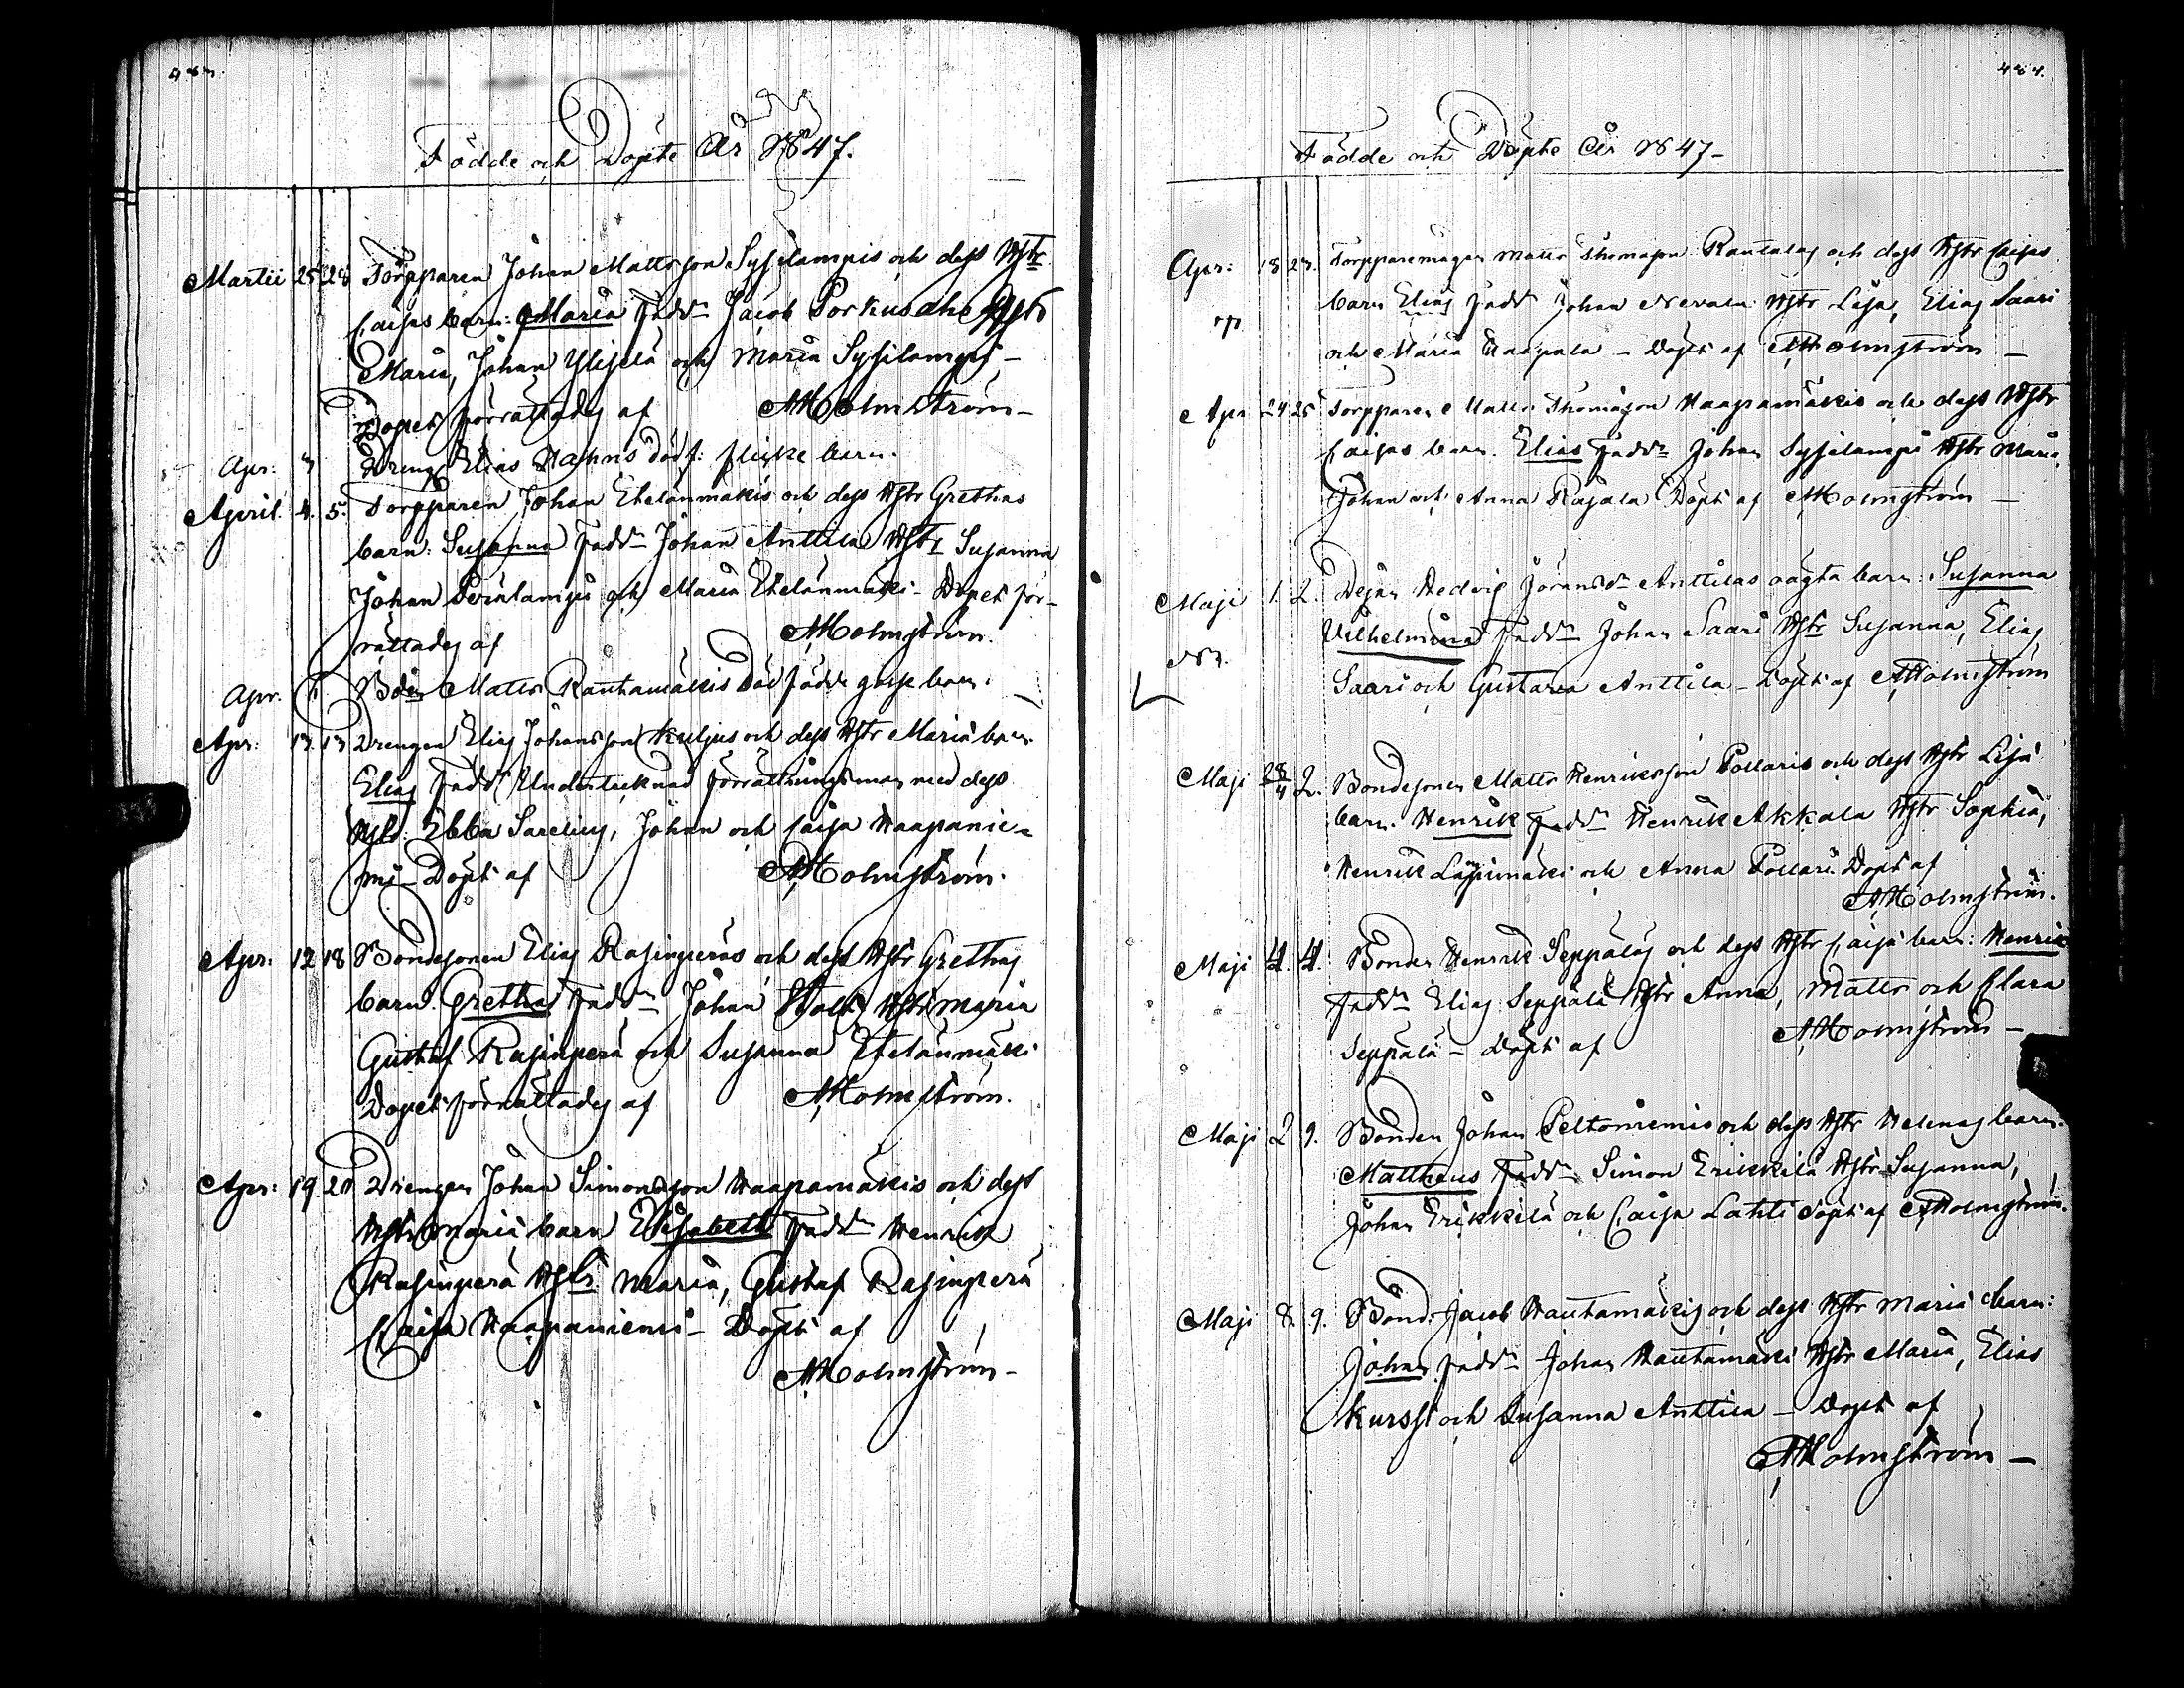 483.
Födde och Döpte År 1847.
Martii 25 28 Torpparen Johan Mattsson Sysilampis och dess Hstr
Caisas barn: Maria Fadd: Jacob Porkusaho Hstr
Maria, Johan Ylisela och Maria Sysilampi –
Dopet förrättades af AHolmström –
Apr: 3 Dreng Elias Hahns dödf: flicke barn.
April 4. 5. Torpparen Johan Etelänmäkis och dess Hstr Grethas
barn: Susanna Fadd: Johan Anttila Hstr Susanna
Johan Perälampi och Maria Etelänmäki – Dopet för-
rättades af AHolmström.
Apr. Bdn Matts Rautamäkis Död födde gosse barn.
Apr: 13 13 Drengen Elias Johansson Kuljus och dess Hstr Maria barn
Elias Fadd: Undertecknad förrättningsman med dess
Hstr: Ebba Sarelius, Johan och Caisa Haapanie-
mi – Döpt af AHolmström.
Apr: 12 18 Bondesonen Elias Rasinperäs och dess Hstr Grethas
barn: Gretha Fadd: Johan Stolt Hstr Maria
Gustaf Rasinperä och Susanna Etelänmäki
Dopet förrättades af AHolmström.
Apr: 19. 20 Drengen Johan Simonsson Haapamäkis och dess
Hstr Maria barn Elisabeth Fadd: Henrik
Rasinperä Hstr Maria, Gustaf Rasinperä
Caisa Haapaniemi – Döpt af
AHolmström –
484.
Födde och Döpte År 1847 –
Apr: 18 23. Torpparemågen Matts Thomasson Rantalas och dess Hstr Caisas
barn Elias Fadd: Johan Nevala Hstr Lisa, Elias Saari
och Maria Haapala – Döpt af AHolmström –
Apr 24 25 Torpparen Matts Thomasson Haapamäkis och dess Hstr
Caisas barn. Elias Fadd: Johan Sysilampi Hstr Maria,
Johan och Anna Rajala Döpt af AHolmström –
Maji 1. 2. Dejan Hedvig Göransdr Anttilas oägta barn: Susanna
Vilhelmina Fadd: Johan Saari Hstr Susanna, Elias
Saari och Gustava Anttila – Döpt af AHolmström
Maji 28/4 2. Bondesonen Matts Henriksson Pollaris och dess Hstr Lisa
barn. Henrik Fadd: Henrik Akkala Hstr Sophia,
Henrik Länsimäki och Anna Pollari Döpt af
AHolmström.
Maji 4. 4. Bonden Henrik Seppäläs och dess Hstr Caisa barn: Henrik
Fadd: Elias Seppälä Hstr Anna, Matts och Clara
Seppälä – Döpt af AHolmström –
Maji 2 9. Bonden Johan Peltoniemis och dess Hstr Helenas barn.
Mattheus Fadd: Simon Erikkilä Hstr Susanna,
Johan Erikkilä och Caisa Lahti Döpt af AHolmström.
Maji 8. 9. Bond: Jacob Hautamäkis och dess Hstr Maria barn:
Johan Fadd: Johan Hautamäki Hstr Maria, Elias
Kurssi och Susanna Anttila – Döpt af
AHolmström –